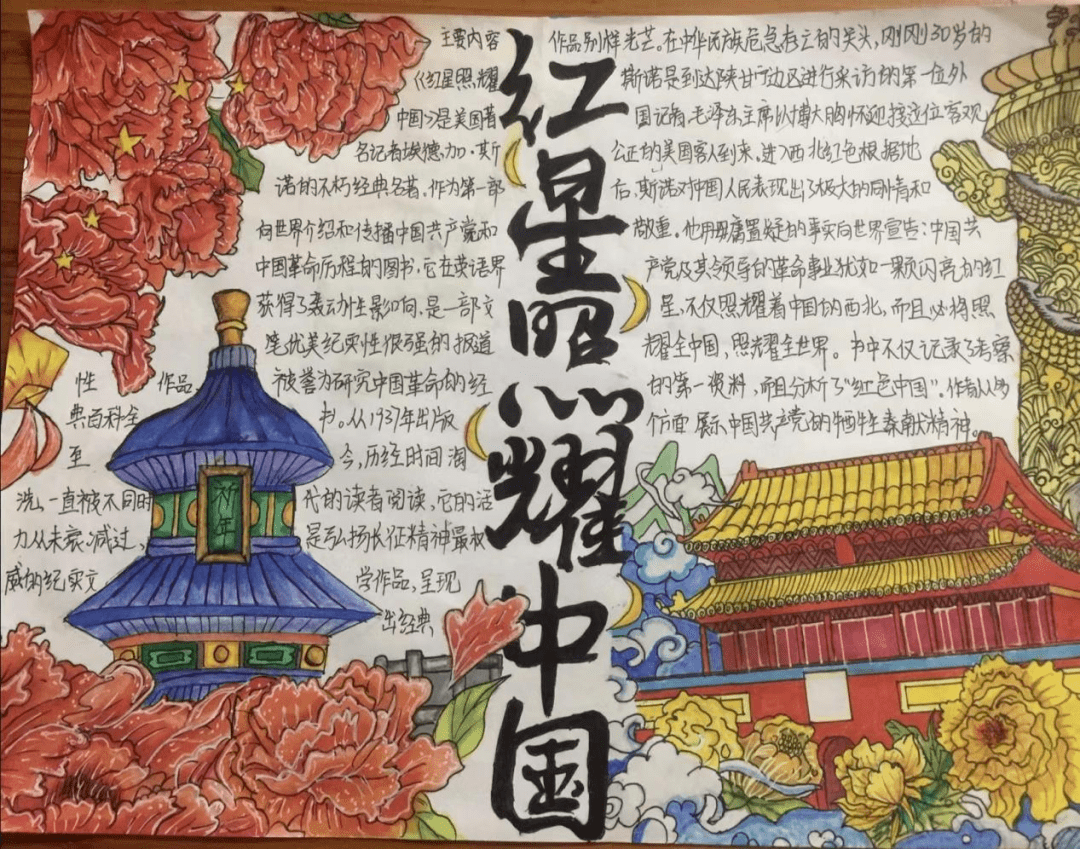 红星照耀中国
主要内容
《红星照耀
中国》是美国著
名记者埃德加·斯
诺的不朽经典名著,作为第一部
向世界介绍和传播中国共产党和
中国革命历程的图书,它在英语界
获得了轰动性影响,是一部文
笔优美纪实性很强的报道
性 作品 被誉为研究中国革命的经
典百科全 书。从1937年出版
至 今,历经时间淘
洗,一直被不同时 代的读者阅读,它的活
力从未衰减过、 是弘扬长征精神最权
威的纪实文 学作品,呈现
出经典
祈年
作品别样光芒。在中华民族危急存亡的关头,刚刚30岁的
斯诺是到达陕甘宁边区进行采访的第一位外
国记者,毛泽东主席以博大胸怀迎接这位客观
公正的美国客人到来,进入西北红色根据地
后,斯诺对中国人民表现出了极大的同情和
敬重。他用毋庸置疑的事实向世界宣告:中国共
产党及其领导的革命事业犹如一颗闪亮的红
星,不仅照耀着中国的西北,而且必将照
耀全中国,照耀全世界。书中不仅记录了考察
的第一资料,而且分析了"红色中国"。作者从多
个方面展示中国共产党的牺牲奉献精神。